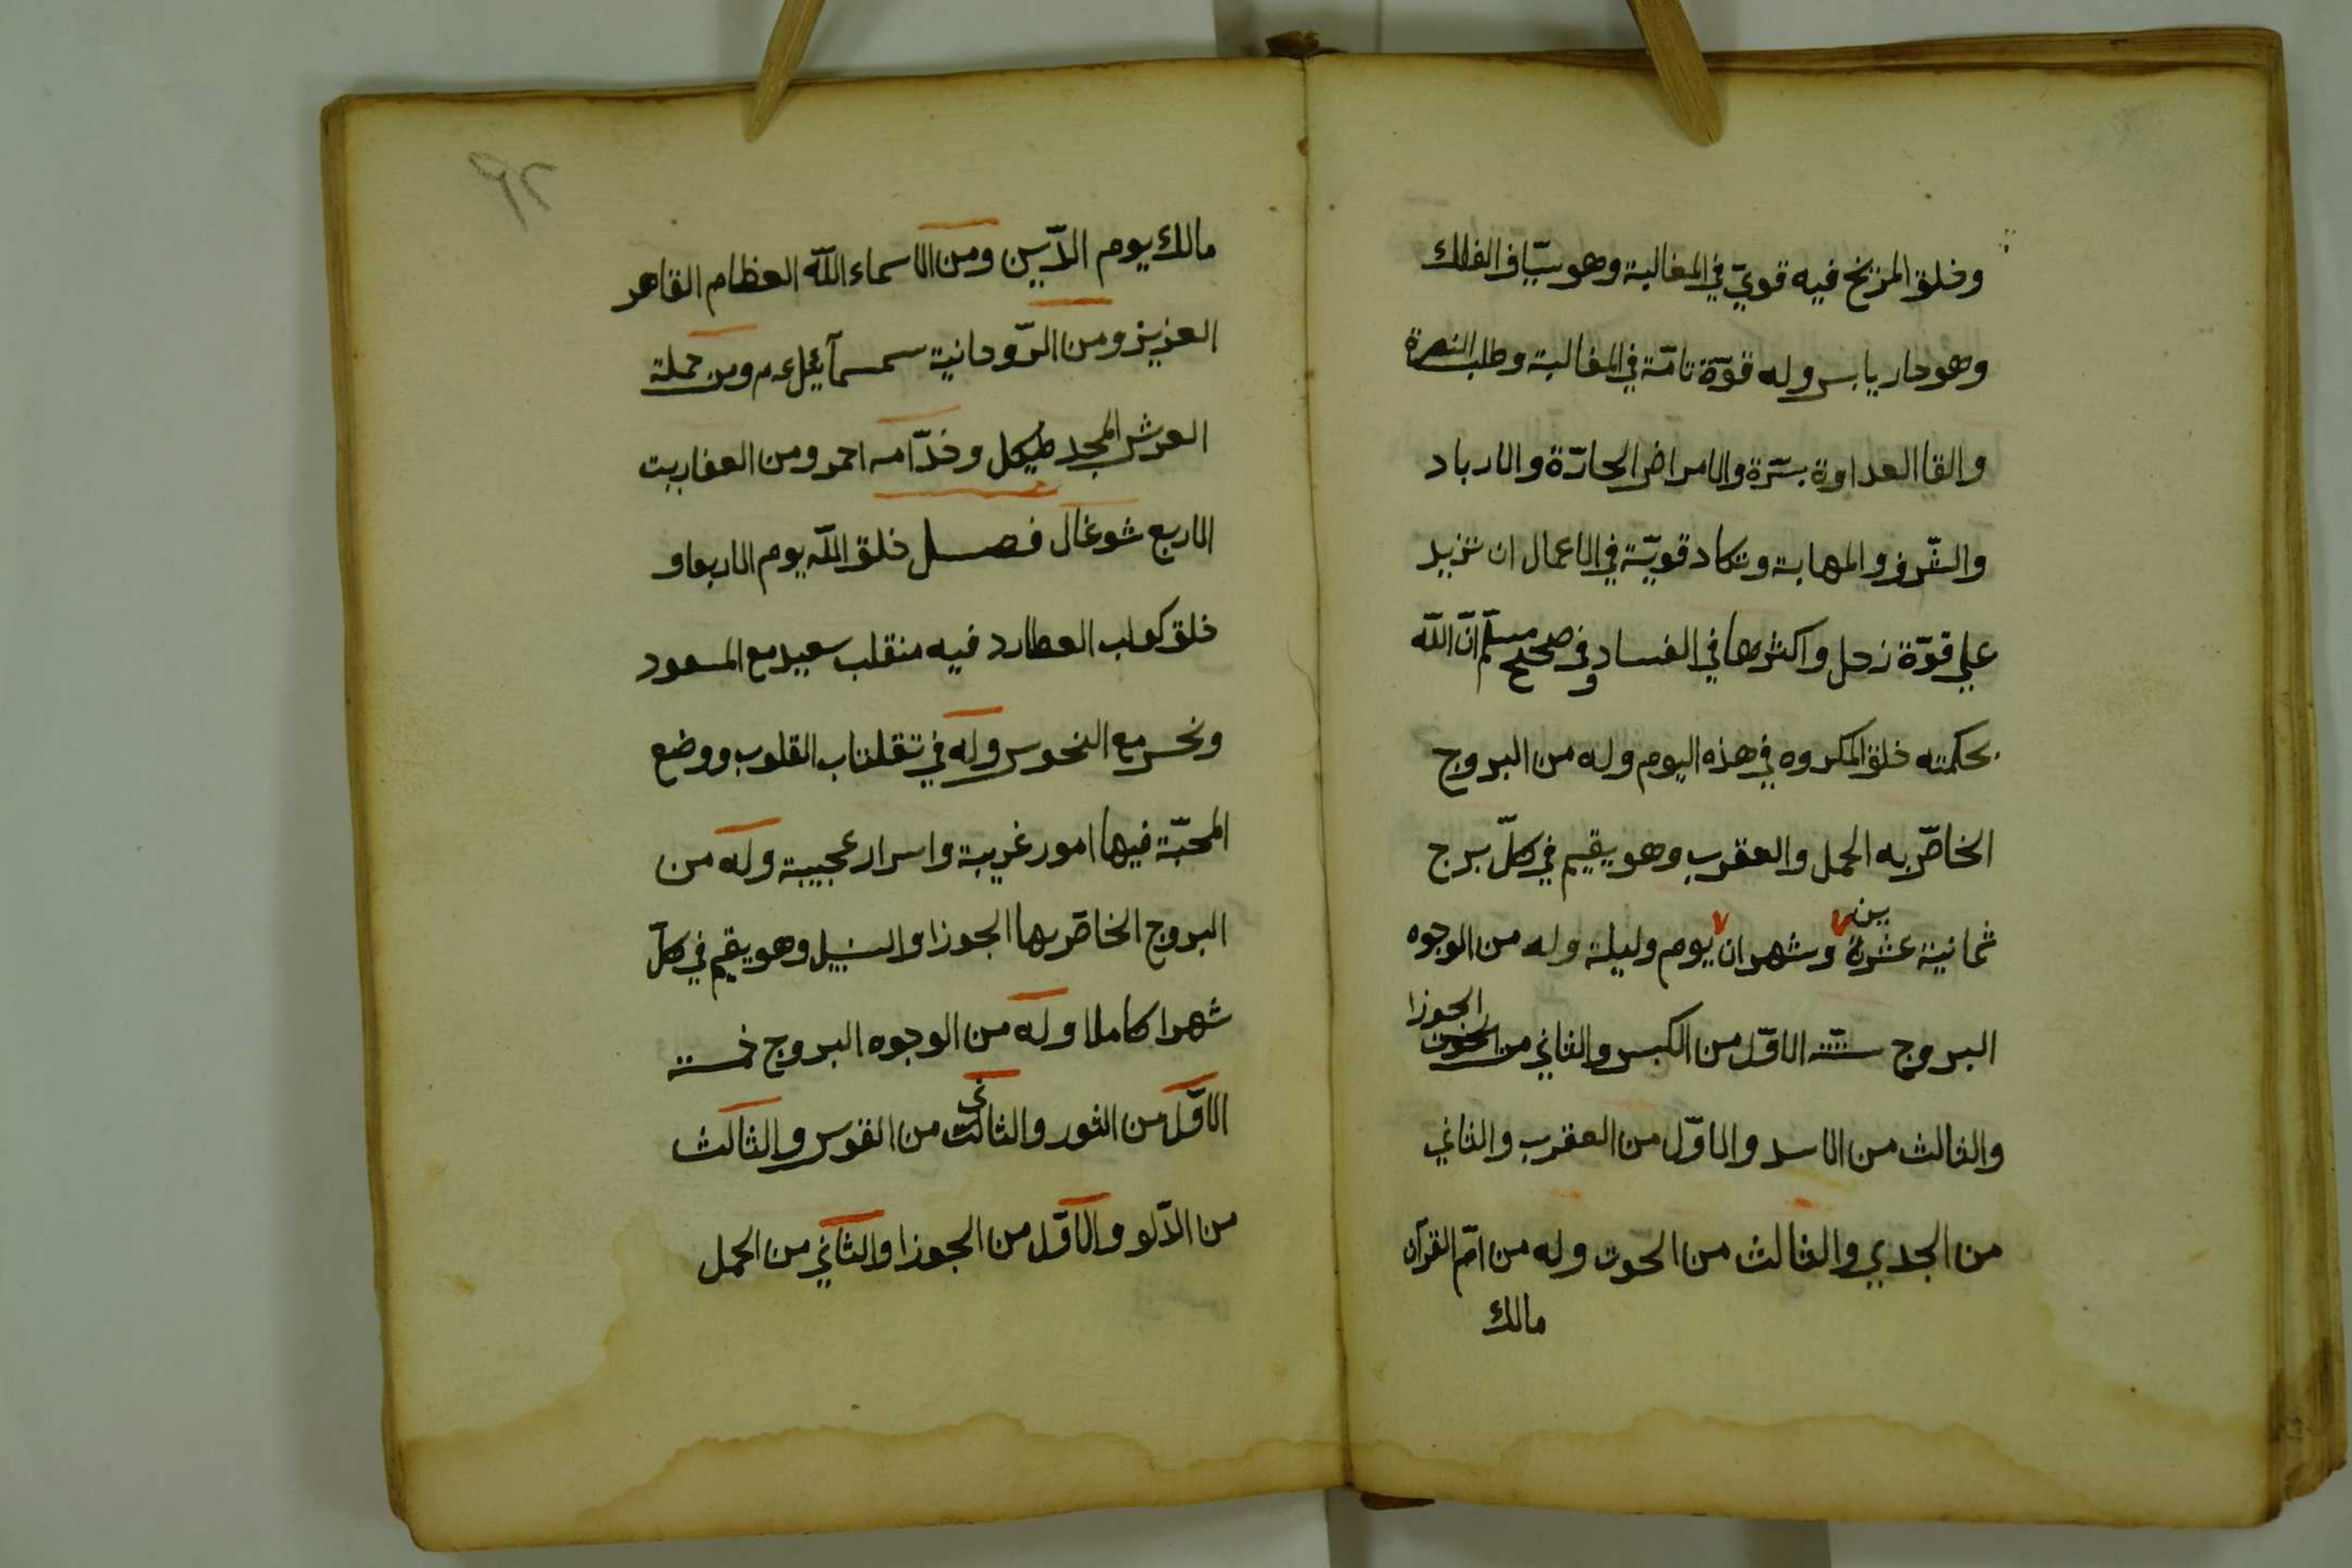 وخلق المزيخ فيه قويّ في المغالبة وهو سيّاف الفلك
وهو حار يابس وله قوّة تامّة في المغالبة وطلب النصرة
والقا العداوة بسّرة والامراض الحادّة والارباد
والشّرف والمهابة وتكاد قويّة في الاعمال ان تزيد
علي قوّة زحل واكثرها في الفساد وفي صحيح مسلم انّ اللّه
بحكمته خلق المكروه في هذه اليوم وله من البروج
الخاصّ به الحمل والعقرب وهو يقيم في كلّ برج
ين
ثمانية عشرة وشهران يوم وليلة وله من الوجوه
الجوزا
البروج ستّته الاوّل من الكبس والثاني من الحوت
والثالث من الاسد والاوّل من العقرب والثاني
من الجدي والثالث من الحوت وله من امّ القرآن
مالك
٩٢
مالك يوم الدّين ومن الاسماء اللّه العظام القاهر
العزيز ومن الرّوحانية سمسمآئيل ع م ومن حملة
العرش المجد طيكل وخدّامه احمر ومن العفاريت
الاربع شوغال فصل خلق اللّه يوم الاربعاو
خلق كوكب العطارد فيه منقلب سعيد مع المسعود
ونحس مع النحوس وله في تقلتاب القلوب ووضع
المحبّة فيها امور غريبة واسرار عجيبة وله من
البروج الخاصّ بها الجوزا والسنبل وهو يقيم في كلّ
شهرا كاملا وله من الوجوه البروج خمسته
ني
الاوّل من الثور والثالث من القوس والثالث
من الدّلو والاوّل من الجوزا والثاني من الحمل